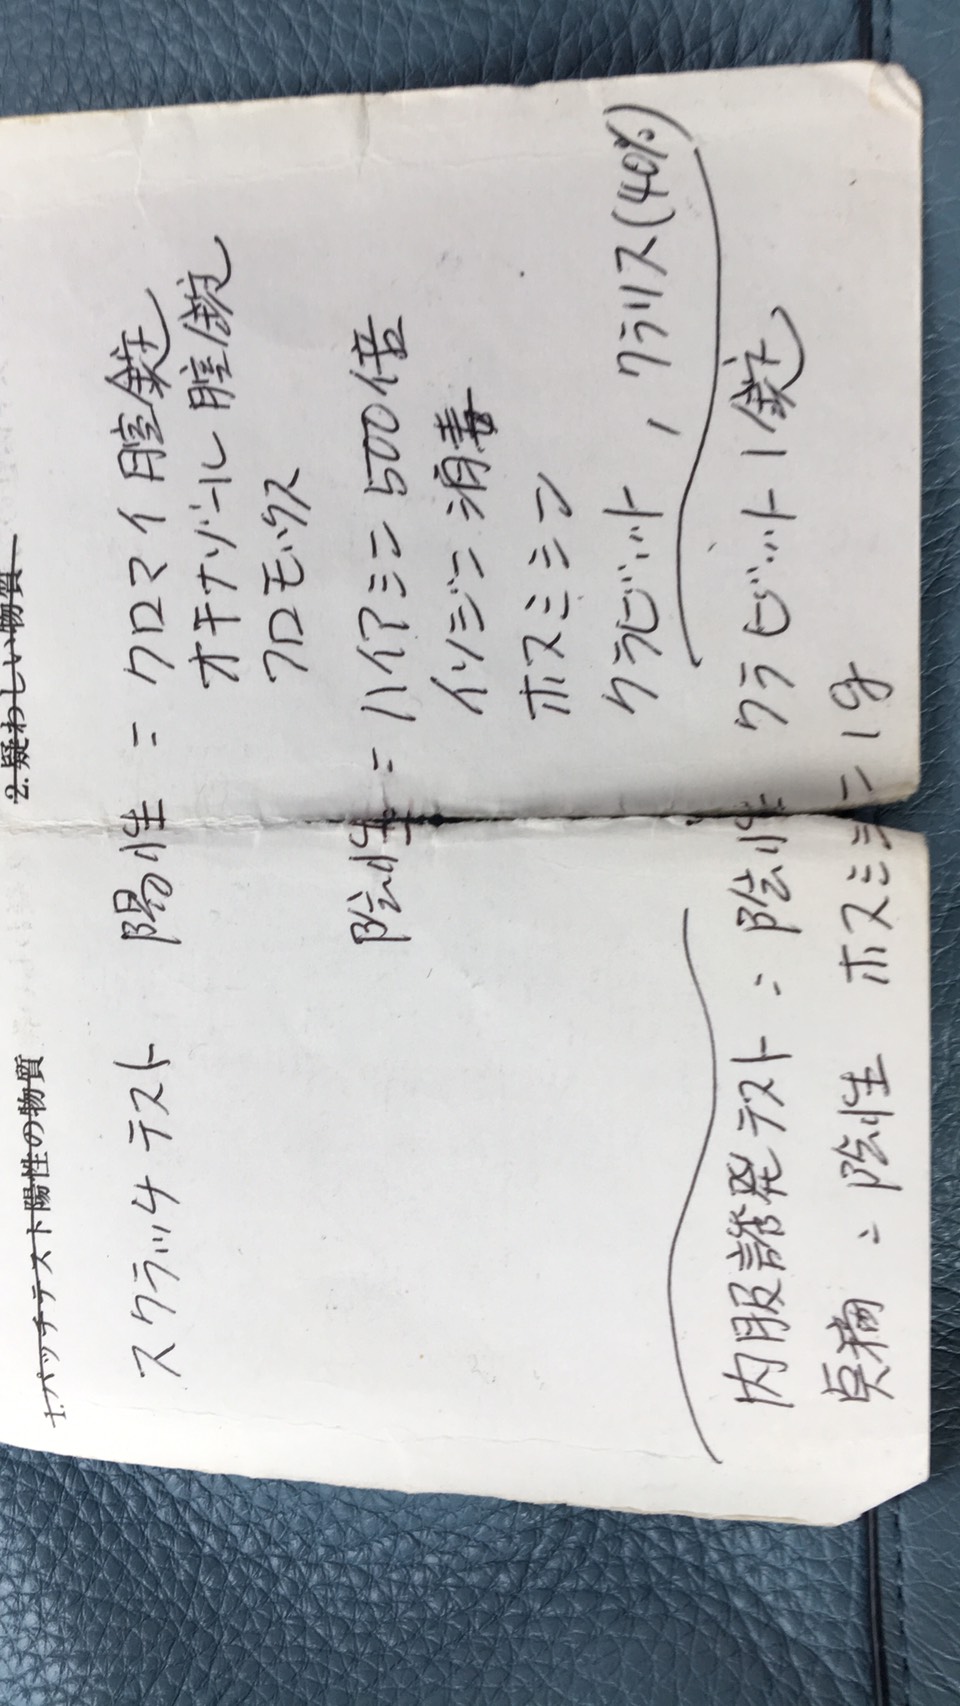 1.パッチテスト陽性の物質 2.疑わしい物質
スクラッチテスト 陽性 = クロマイ腟錠
オキナゾール腟錠
フロモックス
陰性 = ハイアミン 500倍
イソジン消毒
ホスミシン
クラビット , クラリス(40%)
内服誘発テスト = 陰性 クラビット 1錠
点滴 = 陰性 ホスミシン 1g